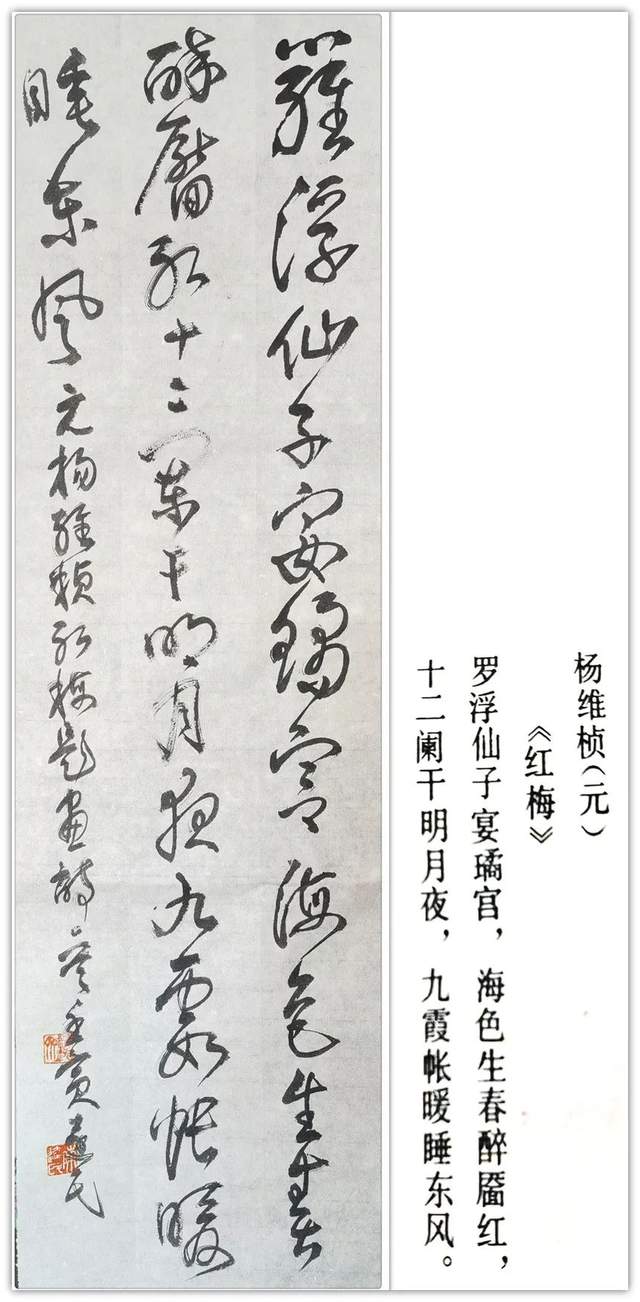 羅浮仙子宴璚宮海色生春
醉靨紅十二闌干明月夜九霞帐暖
睡東風元楊維楨紅梅題畫詩
杨维桢(元)
《红梅》
罗浮仙子宴璚宫，海色生春醉靥红，
十二阑干明月夜，九霞帐暖睡东风。